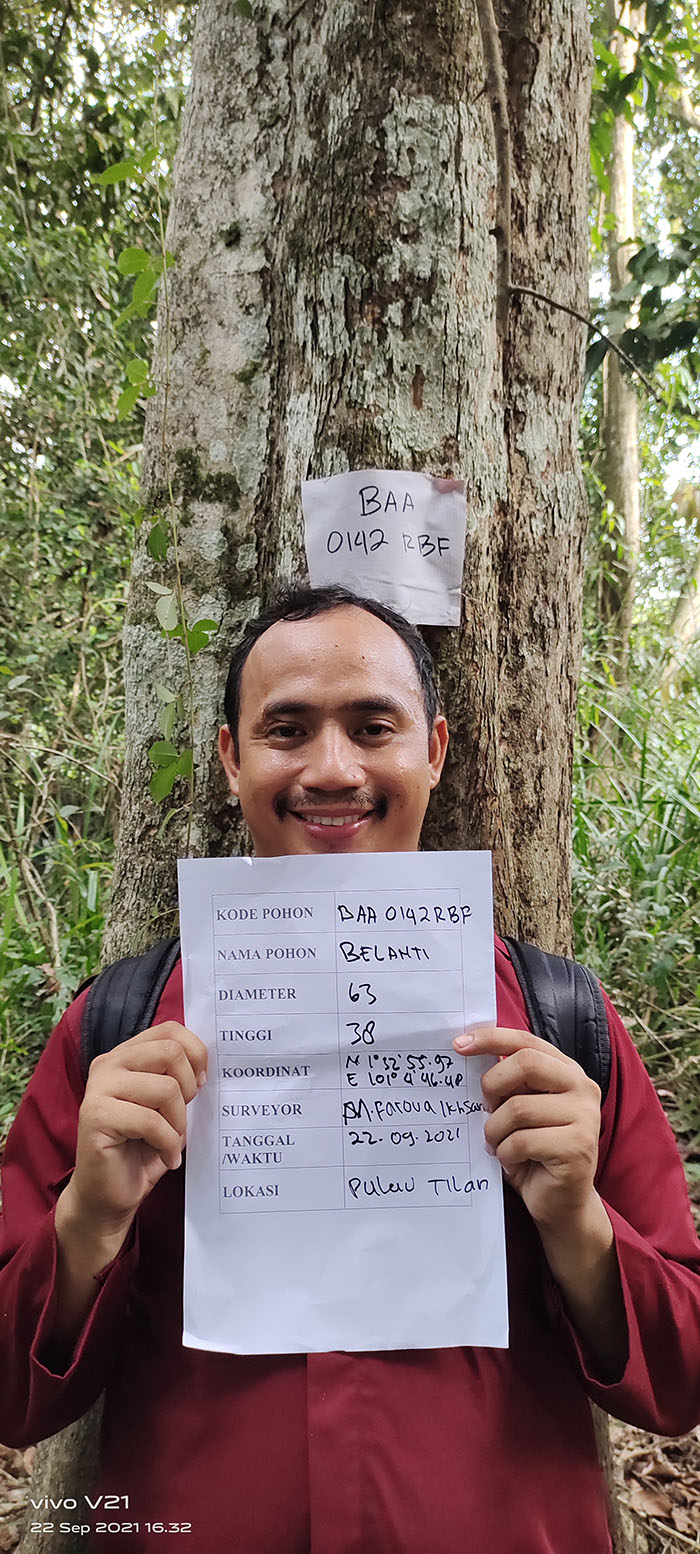 BAA
0142 RBF
KODE POHON BAA 0142RBF
NAMA POHON BELANTI
DIAMETER 63
TINGGI 38
KOORDINAT N 1° 32' 55.97
E 101° 4' 46.48
SURVEYOR M. Farova Ikhsan
TANGGAL 22.09.2021
/WAKTU
LOKASI Pulau Tilan
vivo V21
22 Sep 2021 16.32